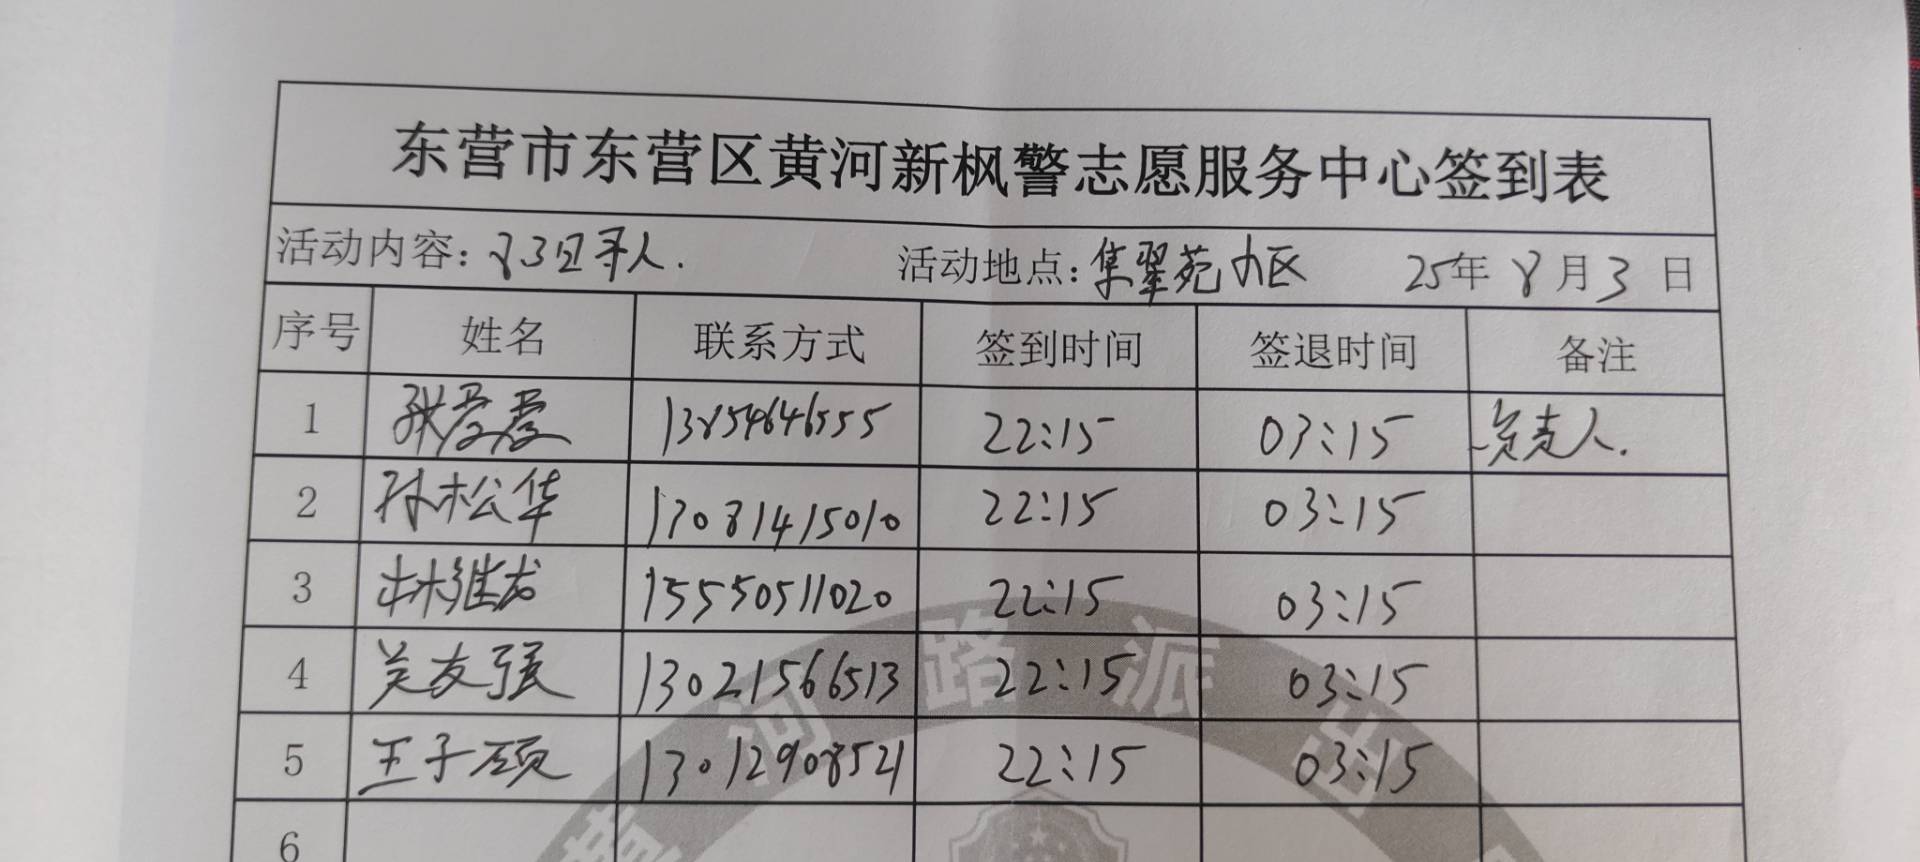 东营市东营区黄河新枫警志愿服务中心签到表
活动内容：83日寻人. 活动地点：集翠苑小区 25年8月3日
序号 姓名 联系方式 签到时间 签退时间 备注
1 张爱爱 13854646555 22:15 03:15 负责人.
2 孙松华 13081415010 22:15 03:15
3 林继龙 15550511020 22:15 03:15
4 关友强 13021566513 22:15 03:15
5 王子硕 13012908521 22:15 03:15
6
黄河路派出